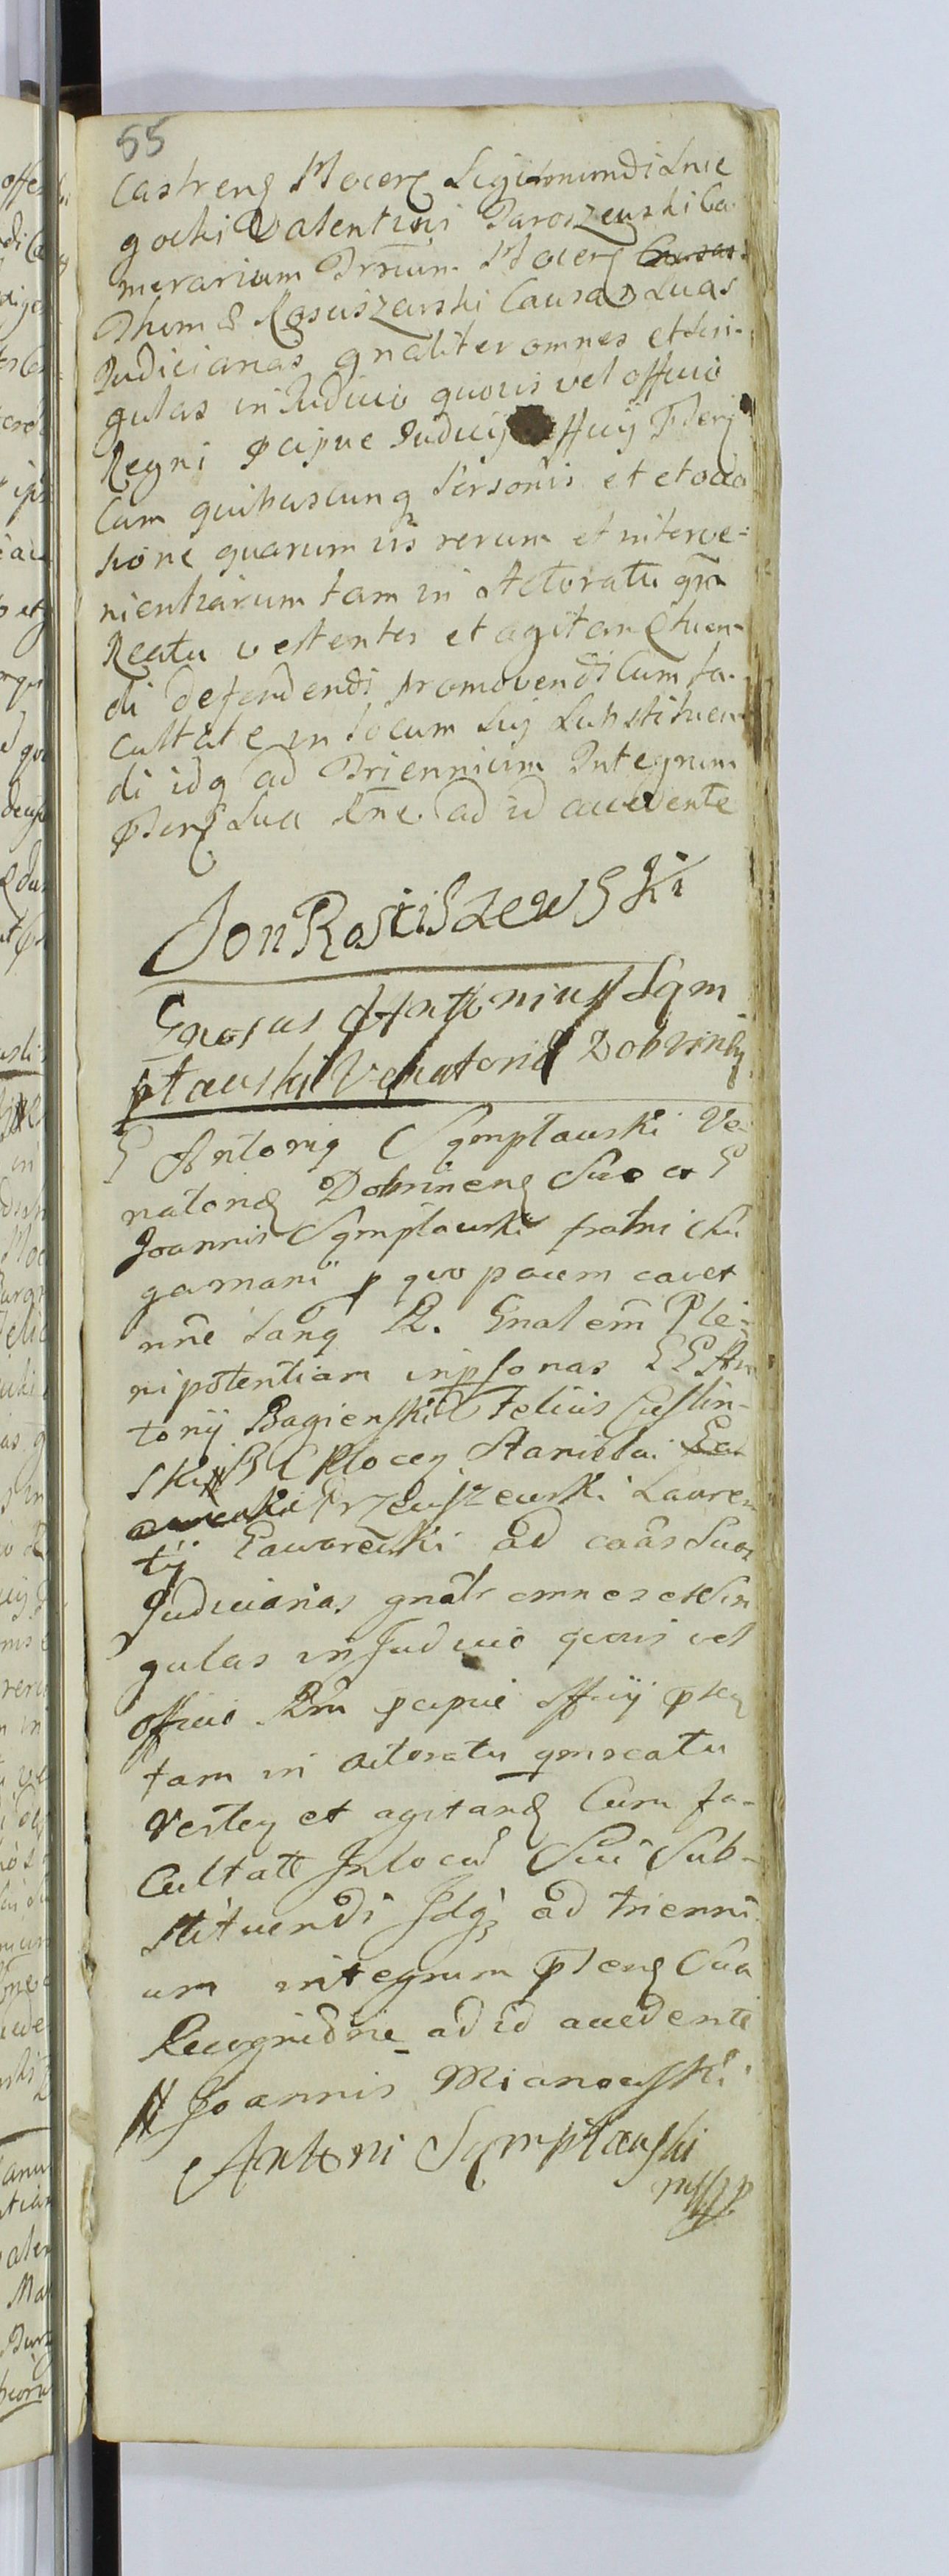 55
Castrens Plocens Sigismundi Snie
gocki Valentini Jaroszewski Ca
merarium Trrum Plocens
Thomæ Rosciszewski Causas Suas
Judiciarias gnaliter omnes et Sin-
gulas in Judicio quovis vel officio
Regni pcipue Judicy officij Pltens
Cum quibuscunq Personis et et occa
sione quarumvis rerum et interve=
nientiarum tam in Actoratu qm
Reatu vertentes et agitan
di defendendi promovendi Cum fa-
cultate in locum Sui Substituen-
di idq ad Triennium Integrum
Ptens Sua Rne ad id accedente
Jon Rosciszewski
Gnosus Antonius Sym
ptawski Venatorid Dobrinen
G Antonig Symptawski Ve
natorid Dobrinens Suo et G
Joannis Symptawski fratris Sui
germani p quo pacem cavet
nne tanq R. Gnalem Ple-
nipotentiam inpsonas GG An
tonij Bagienski Felicis Cieslin-
ski BC Plocen Stanislai
Przeciszewski Lauren
tij Gaworecki ad caas Suas
Judiciarias gnatr omnes et Sin
gulas in Judicio quovis vel
officio Rni pcipue officij pten
tam in actoratu qmreatu
Verten et agitand Cum fa-
Cultate Inlocu Sui Sub-
stituendi Idq ad trienni
um integrum Ptens Sua
Recognidne ad id accedente
Joannis Mianowski
Antoni Symptawski
mpp